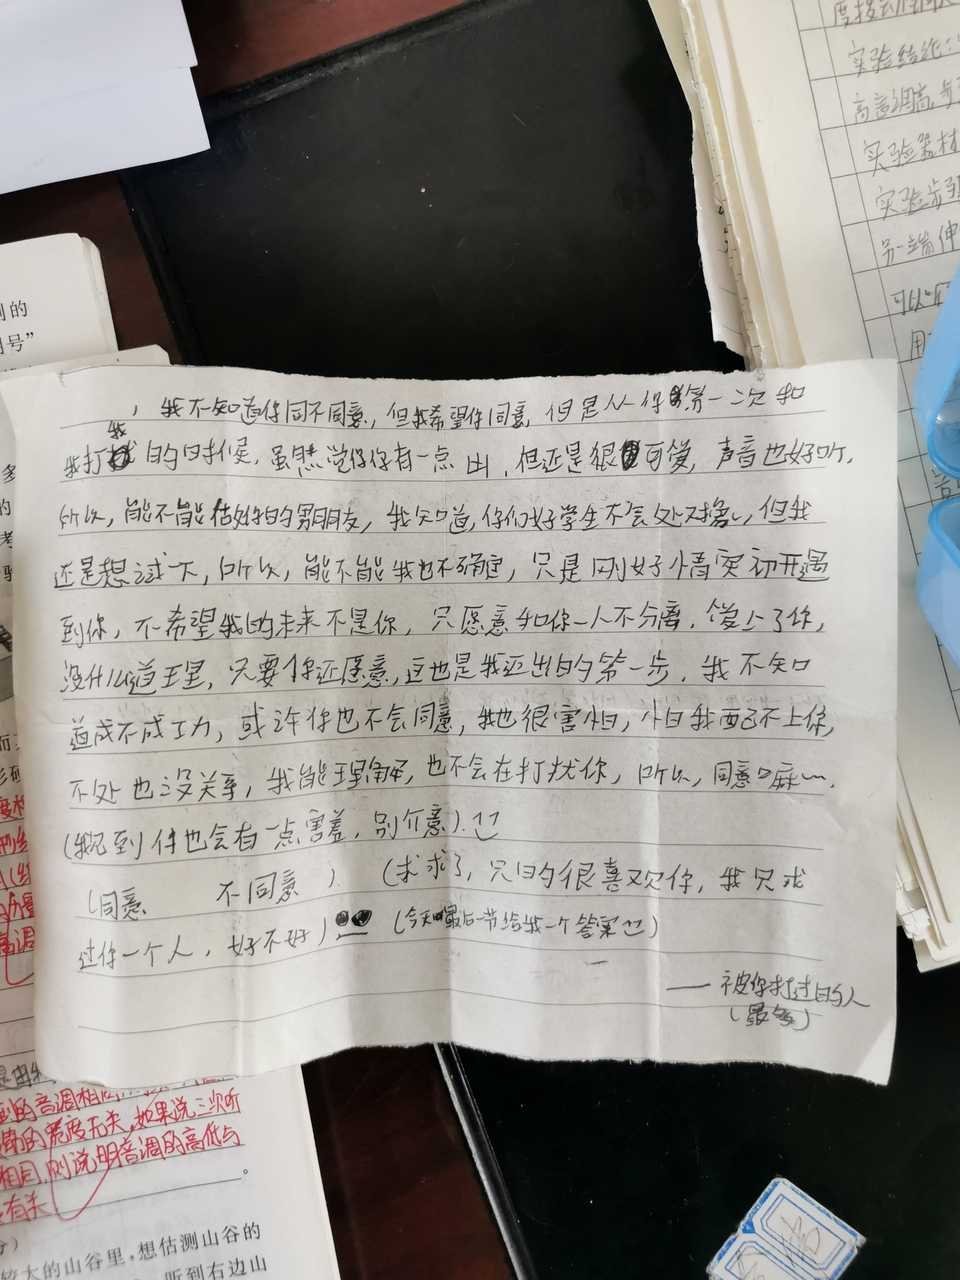 度
实验结论:
高音调高,
实验器材
实验步骤
另一端伸
可以
用
的
号”
多
的
考
,我不知道你同不同意,但我希望你同意,但是从你第一次和
我打我的时候,虽然觉你你有一点凶,但还是很可爱,声音也好听,
所以,能不能做你的男朋友,我知道,你们好学生不会处对象,但我
还是想试一下,所以,能不能我也不确定,只是刚好情窦初开遇
到你,不希望我的未来不是你,只愿意和你一人不分离,爱上了你,
没什么道理,只要你还愿意,这也是我迈出的第一步,我不知
道成不成功,或许你也不会同意,我也很害怕,怕我配不上你,
不处也没关系,我能理解,也不会在打扰你,所以,同意嘛~.
(我见到你也会有一点害羞,别介意).
(同意 不同意). (求求了,只的很喜欢你,我只求
过你一个人,好不好) (今天最后一节给我一个答案)
——被你打过的人
(最多)
的音调相
的宽度无关,如果说三次听
相同,则说明音调的高低与
有关 。
较大的山谷里,想估测山谷的
听到右边山